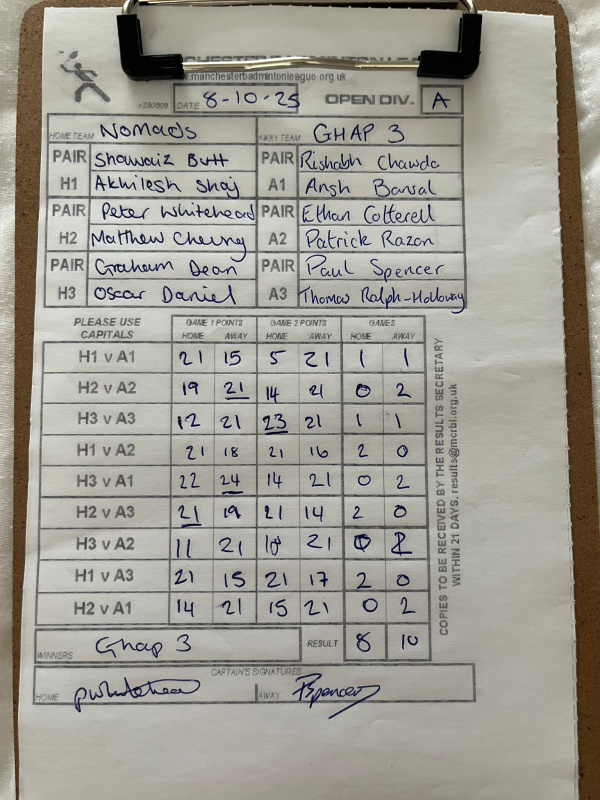 www.manchesterbadmintonleague.org.uk
v280806 DATE 8-10-25 OPEN DIV. A
HOME TEAM Nomads AWAY TEAM GHAP 3
PAIR Shawaiz Butt PAIR Rishabh Chawda
H1 Akhilesh Shaj A1 Ansh Bansal
PAIR Peter Whitehead PAIR Ethan Cotterell
H2 Matthew Cheung A2 Patrick Razon
PAIR Graham Dean PAIR Paul Spencer
H3 Oscar Daniel A3 Thomas Ralph-Holloway
PLEASE USE CAPITALS GAME 1 POINTS GAME 2 POINTS GAMES
HOME AWAY HOME AWAY HOME AWAY
H1 v A1 21 15 5 21 1 1
H2 v A2 19 21 14 21 0 2
H3 v A3 12 21 23 21 1 1
H1 v A2 21 18 21 16 2 0
H3 v A1 22 24 14 21 0 2
H2 v A3 21 19 21 14 2 0
H3 v A2 11 21 10 21 0 2
H1 v A3 21 15 21 17 2 0
H2 v A1 14 21 15 21 0 2
WINNERS Ghap 3 RESULT 8 10
CAPTAIN'S SIGNATURES
HOME pwhitehead AWAY PSpencer
COPIES TO BE RECEIVED BY THE RESULTS SECRETARY
WITHIN 21 DAYS. results@mcrbl.org.uk